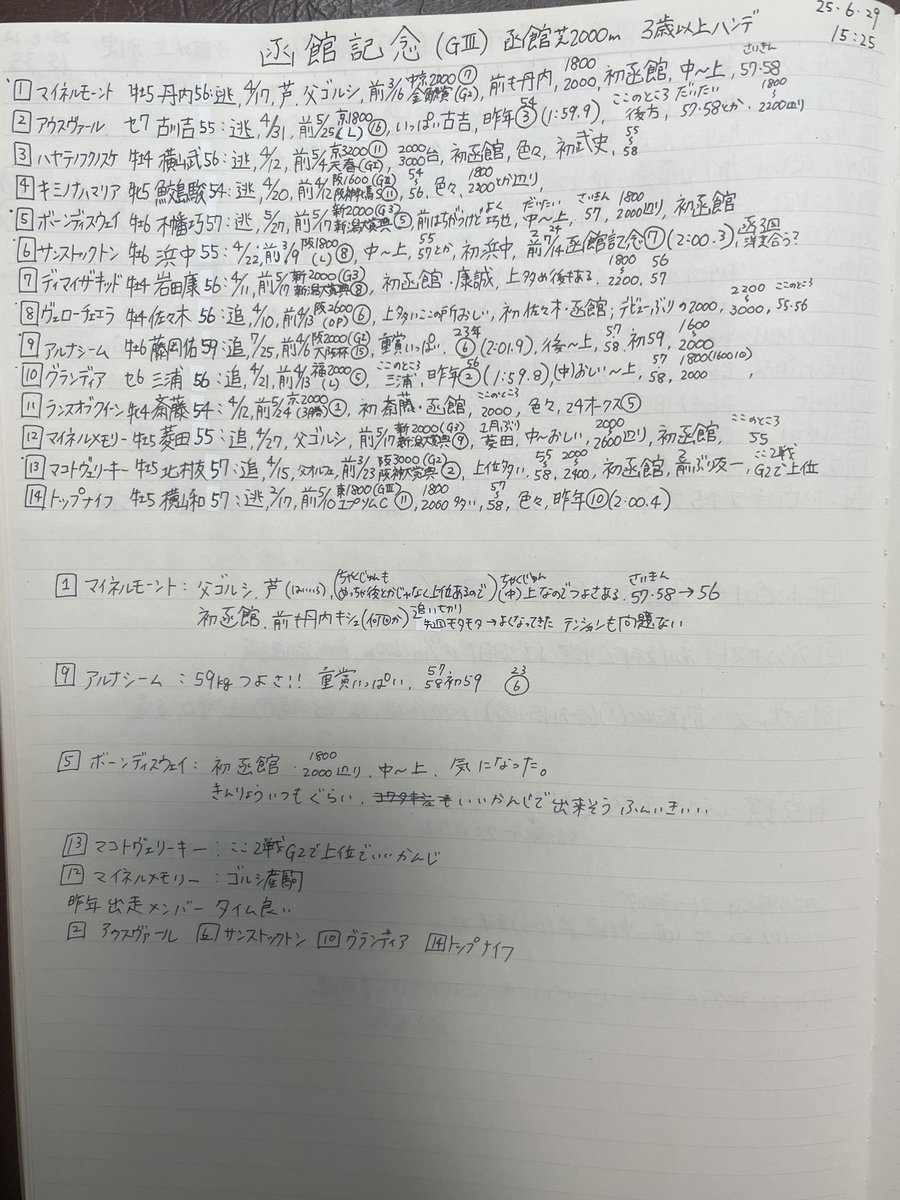 25.6.29
15:25
函館記念(GⅢ) 函館芝2000m 3歳以上ハンデ
1 マイネルモーント 牡5 丹内56:逃, 4/17, 芦, 父ゴルシ, 前3/16 中京2000⑦ 金鯱賞(G2), 前も丹内, 1800 2000, 初函館, 中〜上, さいきん 57-58
2 アウスヴァール セ7 古川吉55:逃, 4/31, 前5/25 京1800(L)⑯, いっぱい古吉, 昨年54③(1:59.9), ここのところ後方, だいたい57-58とか, 1800〜2200辺り
3 ハヤテノフクノスケ 牡4 横山武56:逃, 4/12, 前5/4 京3200⑪ 天春(GⅠ), 2000〜3000台, 初函館, 色々, 初武史, 55〜58
4 キミノナハマリア 牝5 鮫島駿54:逃, 4/20, 前4/12 阪1600(GⅡ) 阪神牝馬S⑪, 54〜56, 色々, 1800〜2200とか辺り,
5 ボーンディスウェイ 牡6 木幡巧57:逃, 5/27, 前5/17 新2000(G3) 新潟大賞典⑤, 前はちがうけどよく巧也, だいたい中〜上, さいきん57, 1800〜2000辺り, 初函館
6 サンストックトン 牡6 浜中55:4/22, 前3/9 阪1800(L)⑧, 中〜上, 55〜57とか, 初浜中, 前7/14函館記念⑦(2:00.3), 函3回 洋芝合う?
7 ディマイザキッド 牡4 岩田康56:4/11, 前5/17 新2000(G3) 新潟大賞典⑧, 初函館・康誠, 上多め後もある, 1800〜2200, 56〜57
8 ヴェローチェエラ 牡4 佐々木56:追, 4/10, 前4/13 阪2600(OP)⑥, 上多いここの所おしい, 初佐々木・函館, デビューぶりの2000, 2200〜3000, ここのところ55-56
9 アルナシーム 牡6 藤岡佑59:追, 7/25, 前4/6 阪2000(G1) 大阪杯⑮, 重賞いっぱい, 23年⑥(2:01.9), 後〜上, 57〜58, 初59, 1600〜2000
10 グランディア セ6 三浦56:追, 4/21, 前4/13 福2000(L)⑤, ここのところ三浦, 昨年②(1:59.8), (中)おしい〜上, 57〜58, 1800(1600 1回)〜2000,
11 ランスオブクイーン 牝4 斎藤54:4/12, 前5/24 京2000(3勝)①, 初斎藤・函館, ここのところ2000, 色々, 24オークス⑤
12 マイネルメモリー 牡5 菱田55:追, 4/27, 父ゴルシ, 前5/17 新2000(G3) 新潟大賞典⑨, 1月ぶり菱田, 中〜おしい, 2000〜2600辺り, 初函館, ここのところ55
13 マコトヴェリーキー 牡5 北村友57:追, 4/15, 父オルフェ, 前3/23 阪3000(G2) 阪神大賞典②, 上位多い, 55〜58, 2000〜2400, 初函館, 2前ぶり友一, ここ2戦G2で上位
14 トップナイフ 牡5 横山和57:逃, 2/17, 前5/10 東1800(GⅢ) エプソムC⑪, 1800〜2000多い, 57〜58, 色々, 昨年⑩(2:00.4)
1 マイネルモーント:父ゴルシ, 芦(はいいろ), (ちゃくじゅんもめっちゃ後とかじゃなく上位あるので) ちゃくじゅん(中)上なのでつよさある, さいきん57-58→56
初函館, 前も丹内キシュ(何回か) 追い切り 先週モタモタ→よくなってきた テンションも問題ない
9 アルナシーム:59kgつよさ!! 重賞いっぱい, 57 58初59 23⑥
5 ボーンディスウェイ:初函館・1800〜2000辺り, 中〜上, 気になった。
きんりょういつもぐらい, いいかんじで出来そう ふんいきいい
13 マコトヴェリーキー:ここ2戦G2で上位でいいかんじ
12 マイネルメモリー:ゴルシ産駒
昨年出走メンバー タイム良い
2 アウスヴァール 6 サンストックトン 10 グランディア 14 トップナイフ